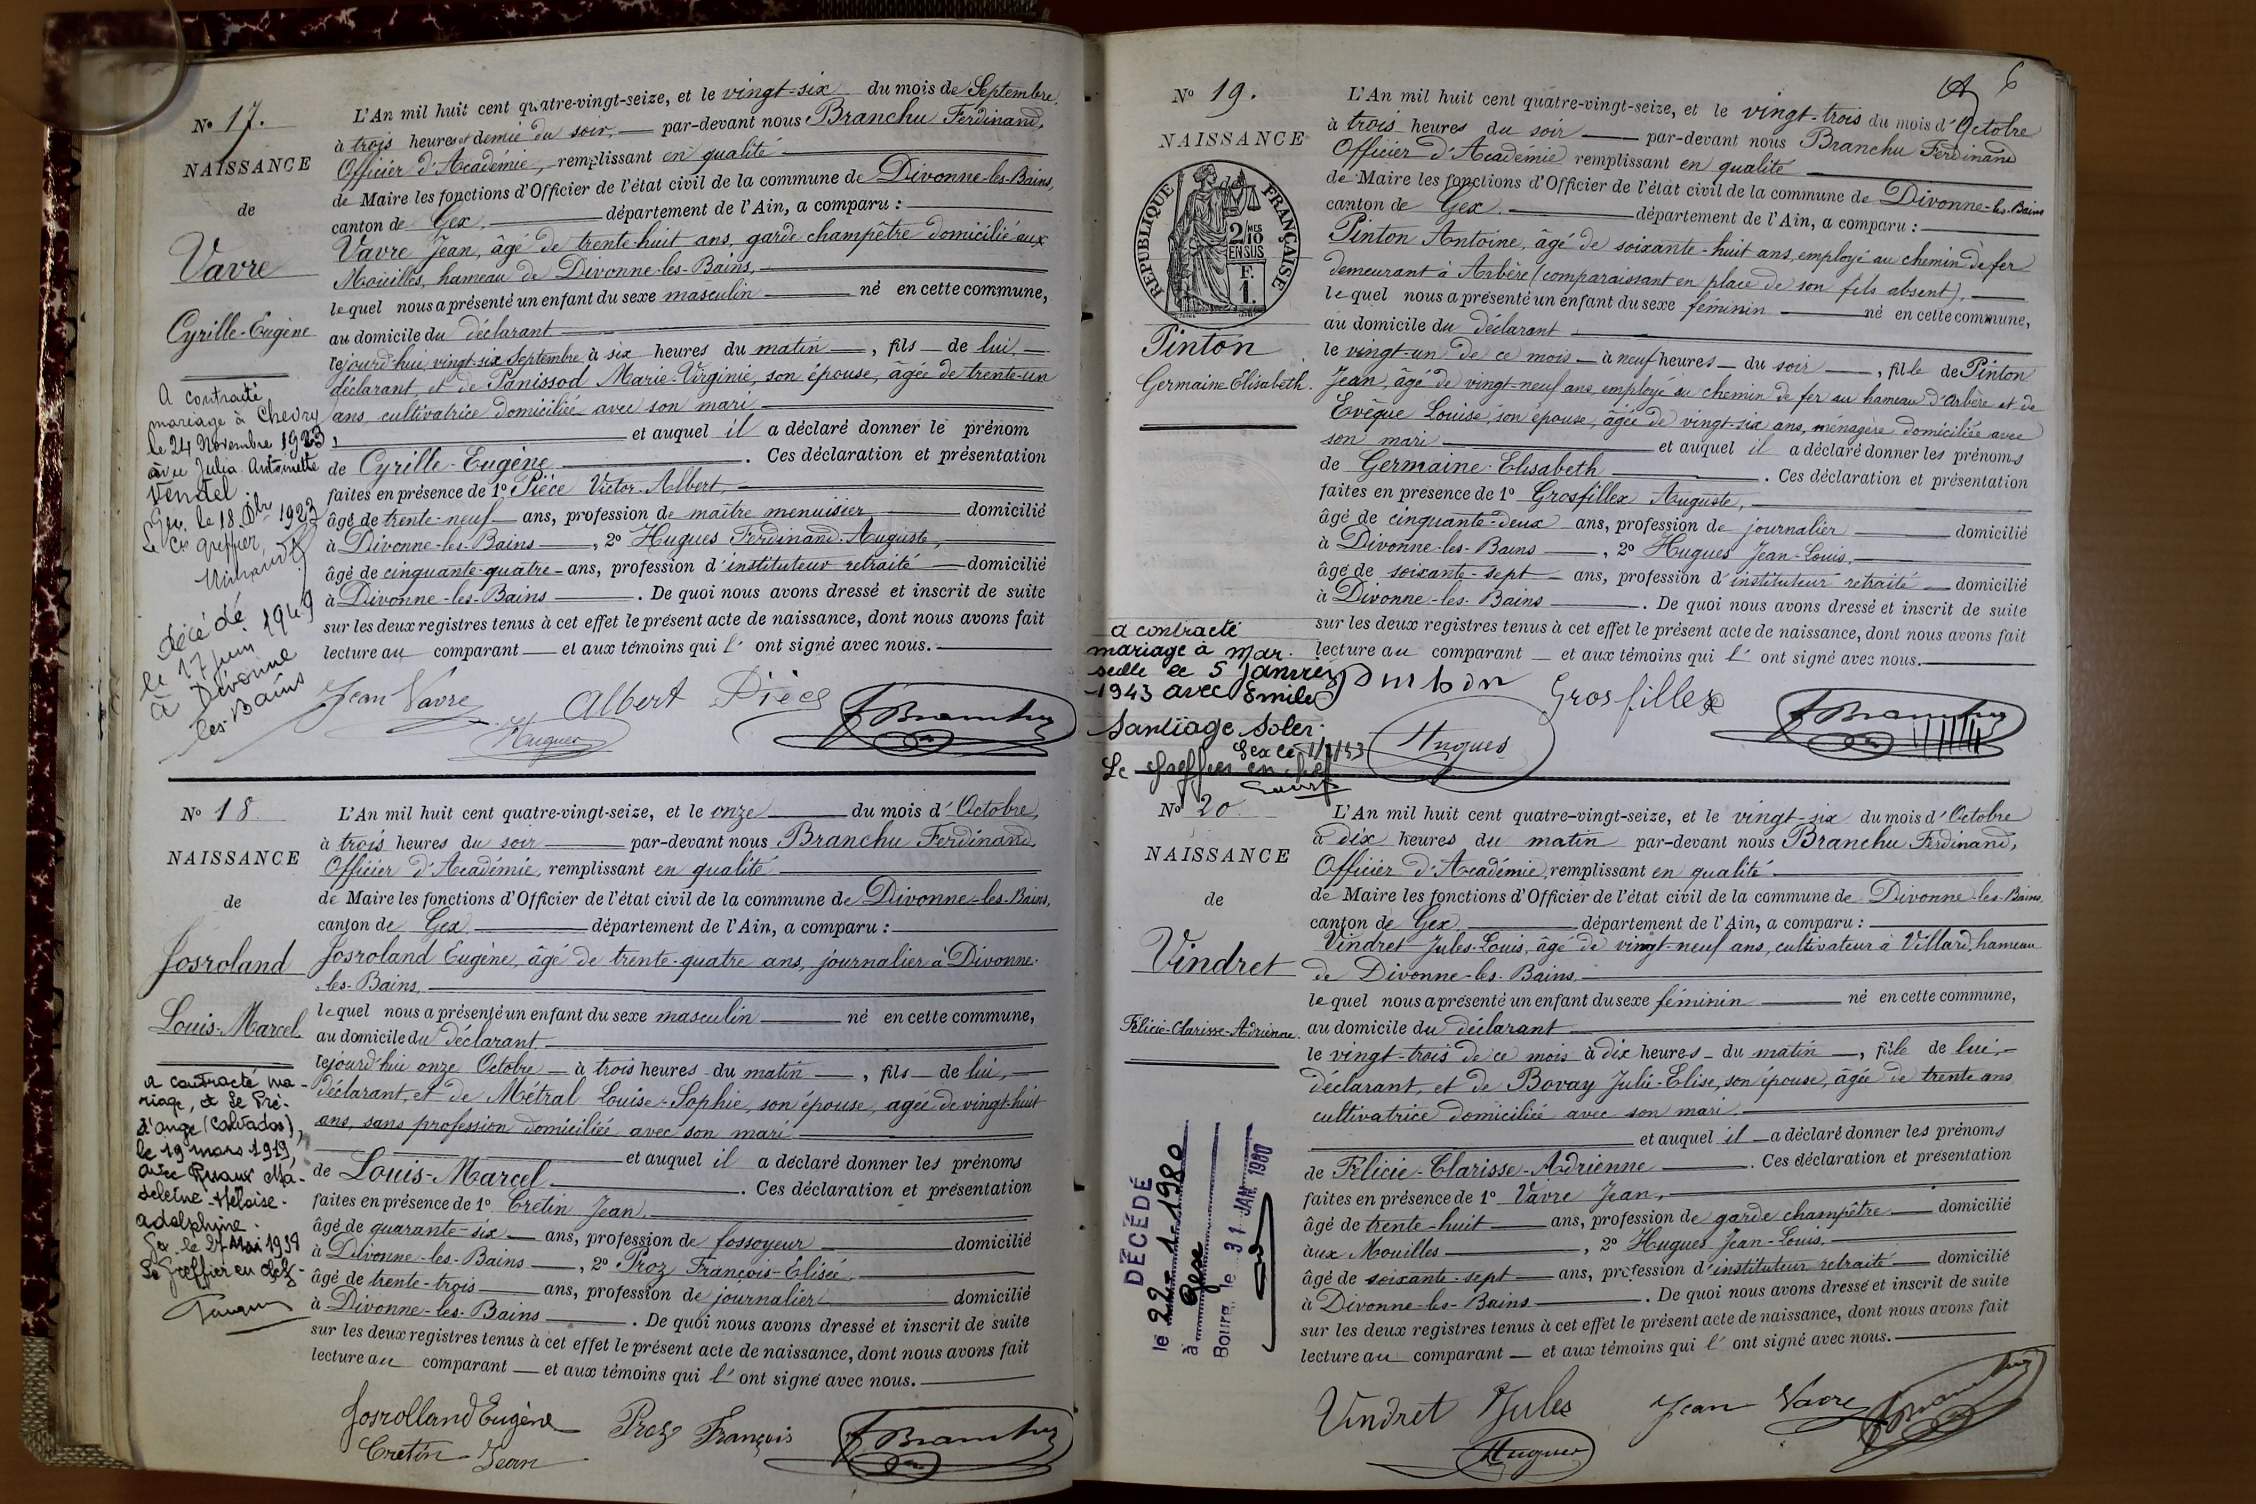 N° 17.
NAISSANCE
de
Vavre
Cyrille-Eugène
A contracté
mariage à Chevry
le 24 Novembre 1923,
avec Julia Antoinette
Vendel
Gex, le 18 Xbre 1923
Le Cis greffier,
Décédé
le 17 juin 1949
à Divonne
les-Bains
L'An mil huit cent quatre-vingt-seize, et le vingt-six du mois de Septembre,
à trois heures et demie du soir, par-devant nous Branchu Ferdinand,
Officier d'Académie, remplissant en qualité
de Maire les fonctions d'Officier de l'état civil de la commune de Divonne-les-Bains,
canton de Gex, département de l'Ain, a comparu :
Vavre Jean, âgé de trente-huit ans, garde champêtre domicilié aux
Mouilles, hameau de Divonne-les-Bains,
lequel nous a présenté un enfant du sexe masculin né en cette commune,
au domicile du déclarant
lejourd'hui vingt-six Septembre à six heures du matin, fils de lui,
déclarant, et de Panissod Marie-Virginie, son épouse, âgée de trente-un
ans, cultivatrice domiciliée avec son mari
et auquel il a déclaré donner le prénom
de Cyrille-Eugène. Ces déclaration et présentation
faites en présence de 1° Pièce Victor-Albert,
âgé de trente-neuf ans, profession de maître menuisier domicilié
à Divonne-les-Bains, 2° Hugues Ferdinand-Auguste,
âgé de cinquante-quatre ans, profession d'instituteur retraité domicilié
à Divonne-les-Bains. De quoi nous avons dressé et inscrit de suite
sur les deux registres tenus à cet effet le présent acte de naissance, dont nous avons fait
lecture au comparant et aux témoins qui l'ont signé avec nous.
Jean Vavre Albert Pièce
Hugues F Branchu
N° 18
NAISSANCE
de
Josroland
Louis-Marcel
A contracté ma-
riage, à Le Pré-
d'auge (Calvados),
le 19 mars 1919,
avec Ruaux Ma-
deleine-Héloïse-
Adolphine.
Gex, le 27 Mai 1938
Le Greffier en chef
L'An mil huit cent quatre-vingt-seize, et le onze du mois d'Octobre,
à trois heures du soir par-devant nous Branchu Ferdinand,
Officier d'Académie, remplissant en qualité
de Maire les fonctions d'Officier de l'état civil de la commune de Divonne-les-Bains,
canton de Gex département de l'Ain, a comparu :
Josroland Eugène, âgé de trente-quatre ans, journalier à Divonne-
les-Bains,
lequel nous a présenté un enfant du sexe masculin né en cette commune,
au domicile du déclarant
lejourd'hui onze Octobre à trois heures du matin, fils de lui,
déclarant, et de Métral Louise-Sophie, son épouse, agée de vingt-huit
ans, sans profession domiciliée avec son mari
et auquel il a déclaré donner les prénoms
de Louis-Marcel. Ces déclaration et présentation
faites en présence de 1° Cretin Jean,
âgé de quarante-six ans, profession de fossoyeur domicilié
à Divonne-les-Bains, 2° Proz François-Elisée
âgé de trente-trois ans, profession de journalier domicilié
à Divonne-les-Bains. De quoi nous avons dressé et inscrit de suite
sur les deux registres tenus à cet effet le présent acte de naissance, dont nous avons fait
lecture au comparant et aux témoins qui l'ont signé avec nous.
Josrolland Eugène Proz François F Branchu
Cretin Jean
6
N° 19.
NAISSANCE
REPUBLIQUE FRANÇAISE
2/10 MES
EN SUS
F.
1.
Pinton
Germaine Elisabeth.
a contracté
mariage à Mar-
seille le 5 Janvier
1943 avec Emile
Santiago Soler
Le Greffier en chef
L'An mil huit cent quatre-vingt-seize, et le vingt-trois du mois d'Octobre
à trois heures du soir par-devant nous Branchu Ferdinand
Officier d'Académie remplissant en qualité
de Maire les fonctions d'Officier de l'état civil de la commune de Divonne-les-Bains
canton de Gex. département de l'Ain, a comparu :
Pinton Antoine, âgé de soixante-huit ans, employé au chemin de fer
demeurant à Arbère (comparaissant en place de son fils absent),
lequel nous a présenté un enfant du sexe féminin né en cette commune,
au domicile du déclarant
le vingt-un de ce mois à neuf heures du soir, fille de Pinton
Jean, âgé de vingt-neuf ans, employé au chemin de fer au hameau d'Arbère et de
Evêque Louise, son épouse, âgée de vingt-six ans, ménagère domiciliée avec
son mari et auquel il a déclaré donner les prénoms
de Germaine-Elisabeth. Ces déclaration et présentation
faites en présence de 1° Grosfillex Auguste,
âgé de cinquante-deux ans, profession de journalier domicilié
à Divonne-les-Bains, 2° Hugues Jean-Louis,
âgé de soixante-sept ans, profession d'instituteur retraité domicilié
à Divonne-les-Bains. De quoi nous avons dressé et inscrit de suite
sur les deux registres tenus à cet effet le présent acte de naissance, dont nous avons fait
lecture au comparant et aux témoins qui l'ont signé avec nous.
Grosfillex
Hugues F Branchu
N° 20.
NAISSANCE
de
Vindret
Félicie-Clarisse-Adrienne.
DÉCÉDÉ
le 22-1-1980
à Gex
Bourg, le 31 JAN. 1980
L'An mil huit cent quatre-vingt-seize, et le vingt-six du mois d'Octobre
à dix heures du matin par-devant nous Branchu Ferdinand,
Officier d'Académie, remplissant en qualité
de Maire les fonctions d'Officier de l'état civil de la commune de Divonne-les-Bains,
canton de Gex département de l'Ain, a comparu :
Vindret Jules-Louis, âgé de vingt-neuf ans, cultivateur à Villard, hameau
de Divonne-les-Bains,
lequel nous a présenté un enfant du sexe féminin né en cette commune,
au domicile du déclarant
le vingt-trois de ce mois à dix heures du matin, fille de lui,
déclarant, et de Bovay Julie-Elise, son épouse, âgée de trente ans
cultivatrice domiciliée avec son mari
et auquel il a déclaré donner les prénoms
de Félicie-Clarisse-Adrienne. Ces déclaration et présentation
faites en présence de 1° Vavre Jean,
âgé de trente-huit ans, profession de garde champêtre domicilié
aux Mouilles, 2° Hugues Jean-Louis.
âgé de soixante-sept ans, profession d'instituteur retraité domicilié
à Divonne-les-Bains. De quoi nous avons dressé et inscrit de suite
sur les deux registres tenus à cet effet le présent acte de naissance, dont nous avons fait
lecture au comparant et aux témoins qui l'ont signé avec nous.
Vindret Jules Jean Vavre F Branchu
Hugues